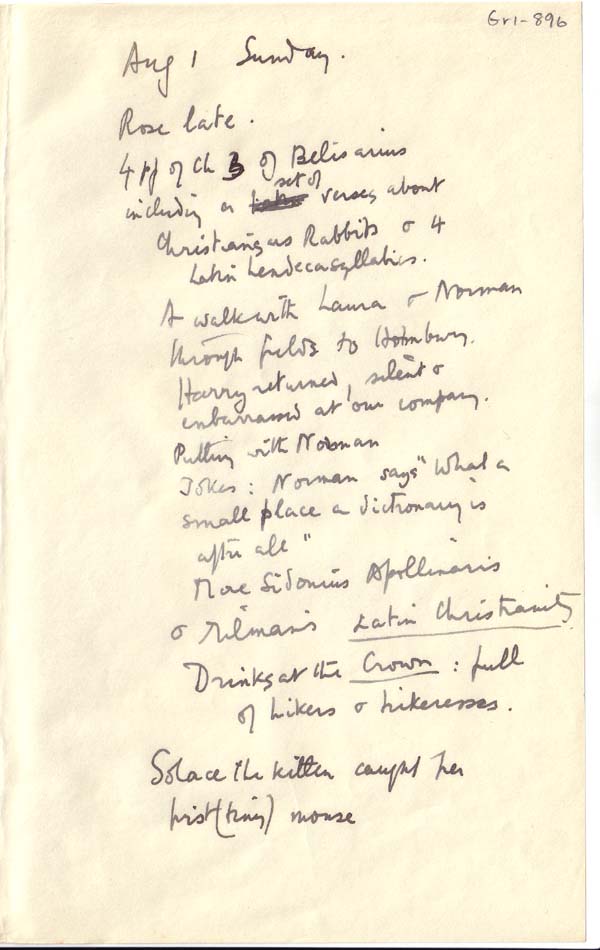 Gr1-896
Aug 1 Sunday.
Rose late.
4 pp of Ch 3 of Belisarius
set of
including a verses about
Christians as Rabbits & 4
Latin hendecasyllabics.
A walk with Laura & Norman
through fields to Holmbury.
Harry returned, silent &
embarrassed at our company.
Putting with Norman
Jokes: Norman says "What a
small place a dictionary is
after all"
More Sidonius Apollinaris
& Milman's Latin Christianity
Drinks at the Crown: full
of hikers & hikeresses.
Solace the kitten caught her
first (tiny) mouse